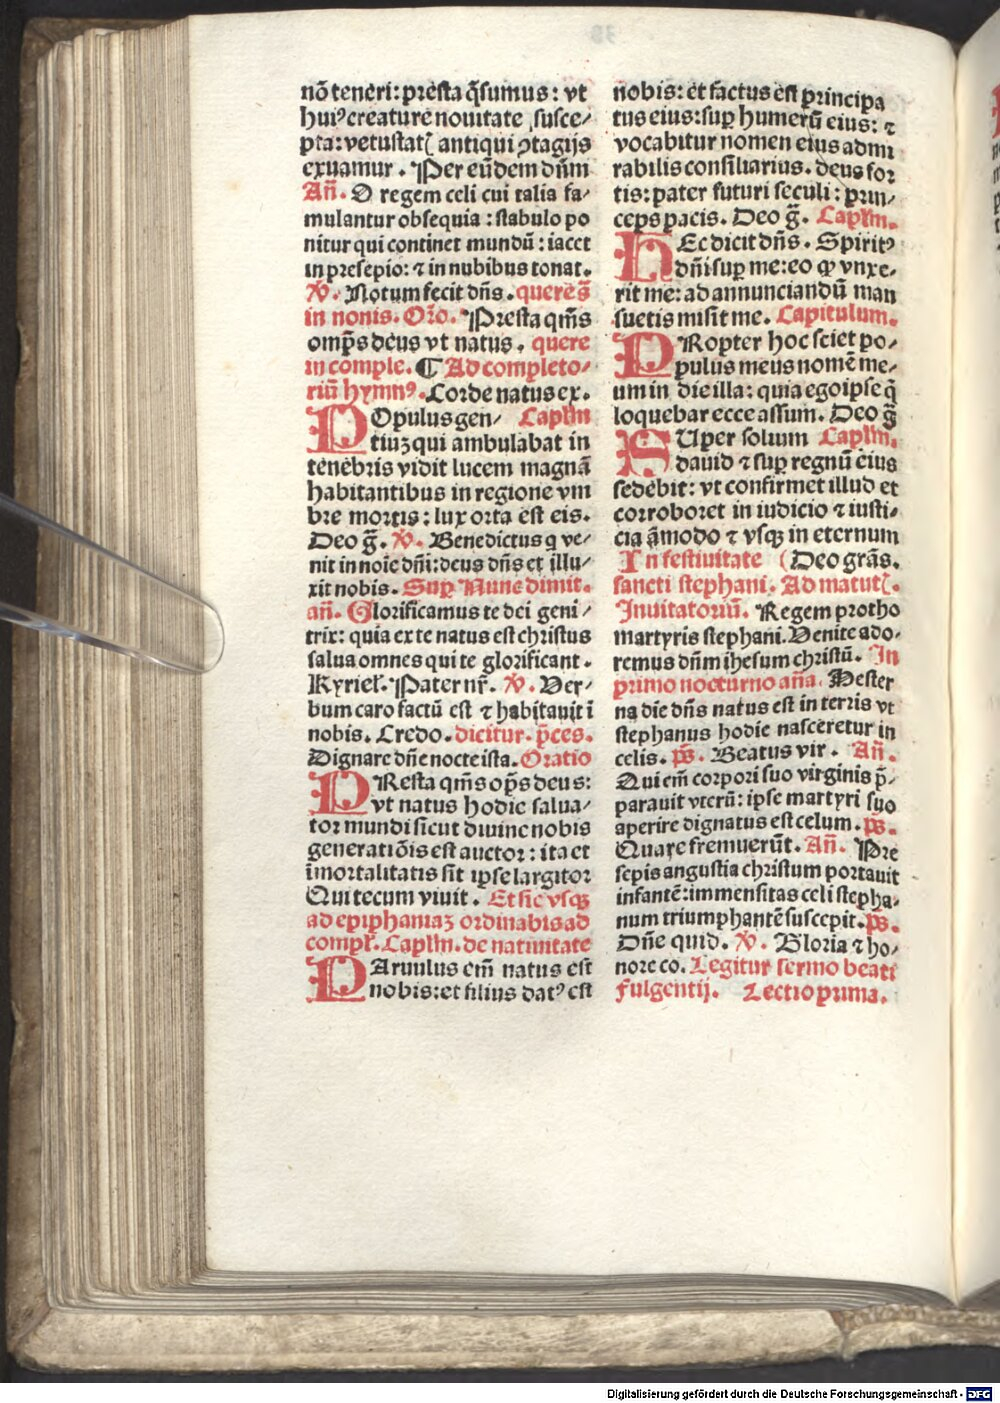 nō teneri: presta q̄sumus: vt
huiꝰ creature nouitate susce⸗
pta: vetustatꝭ antiqui ꝯtagijs
exuamur. Per eūdem dn̄m
An̄. O regem celi cui talia fa⸗
mulantur obsequia: stabulo po
nitur qui continet mundū: iacet
in presepio: ⁊ in nubibus tonat.
℣. Notum fecit dn̄s. quere s̄
in nonis. Or̄o. Presta qm̄s
omp̄s deus vt natus. quere
in comple. ¶ Ad completo⸗
riū hymnꝰ. Corde natus ex.
POpulus gen⸗ Capl̄m
tiuꝫ qui ambulabat in
tenebris vidit lucem magnā
habitantibus in regione vm
bre mortis: lux orta est eis.
Deo ḡ. ℣. Benedictus q̄ ve⸗
nit in noīe dn̄i: deus dn̄s et illu⸗
xit nobis. Sup̄ Nunc dimit.
an̄. Glorificamus te dei geni⸗
trix: quia ex te natus est christus
salua omnes qui te glorificant.
Kyriel̄. Pater nr̄. ℣. Ver⸗
bum caro factū est ⁊ habitauit ī
nobis. Credo. dicitur. p̄ces.
Dignare dn̄e nocte ista. Oratio
PResta qm̄s op̄s deus:
vt natus hodie salua⸗
tor mundi sicut diuine nobis
generatiōis est auctor: ita et
īmortalitatis sit ipse largitor
Qui tecum viuit. Et sic vsqꝫ
ad epiphaniaꝫ ordinabis ad
compl̄. Capl̄m. de natiuitate
PAruulus em̄ natus est
nobis: et filius datꝰ est
nobis: et factus est principa
tus eius: sup̄ humerū eius: ⁊
vocabitur nomen eius admi
rabilis consiliarius. deus for
tis: pater futuri seculi: prin⸗
ceps pacis. Deo ḡ. Capl̄m.
HEc dicit dn̄s. Spiritꝰ
dn̄i sup̄ me: eo ꝙ vnxe⸗
rit me: ad annunciandū man
suetis misit me. Capitulum.
PRopter hoc sciet po⸗
pulus meus nomē me⸗
um in die illa: quia ego ipse q̄
loquebar ecce assum. Deo ḡ
SUper solium Capl̄m.
dauid ⁊ sup̄ regnū eius
sedebit: vt confirmet illud et
corroboret in iudicio ⁊ iusti⸗
cia āmodo ⁊ vsqꝫ in eternum
In festiuitate (Deo grās.
sancti stephani. Ad matutꝭ.
Inuitatoriū. Regem protho
martyris stephani. Venite ado⸗
remus dn̄m ihesum christū. In
primo nocturno an̄a. Hester
na die dn̄s natus est in terris vt
stephanus hodie nasceretur in
celis. ps̄. Beatus vir. An̄.
Qui em̄ corpori suo virginis p̄⸗
parauit vterū: ipse martyri suo
aperire dignatus est celum. ps̄.
Quare fremuerūt. An̄. Pre
sepis angustia christum portauit
infantē: immensitas celi stepha⸗
num triumphantē suscepit. ps̄.
Dn̄e quid. ℣. Gloria ⁊ ho⸗
nore co. Legitur sermo beati
Fulgentij. Lectio prima.
Digitalisierung gefördert durch die Deutsche Forschungsgemeinschaft - DFG